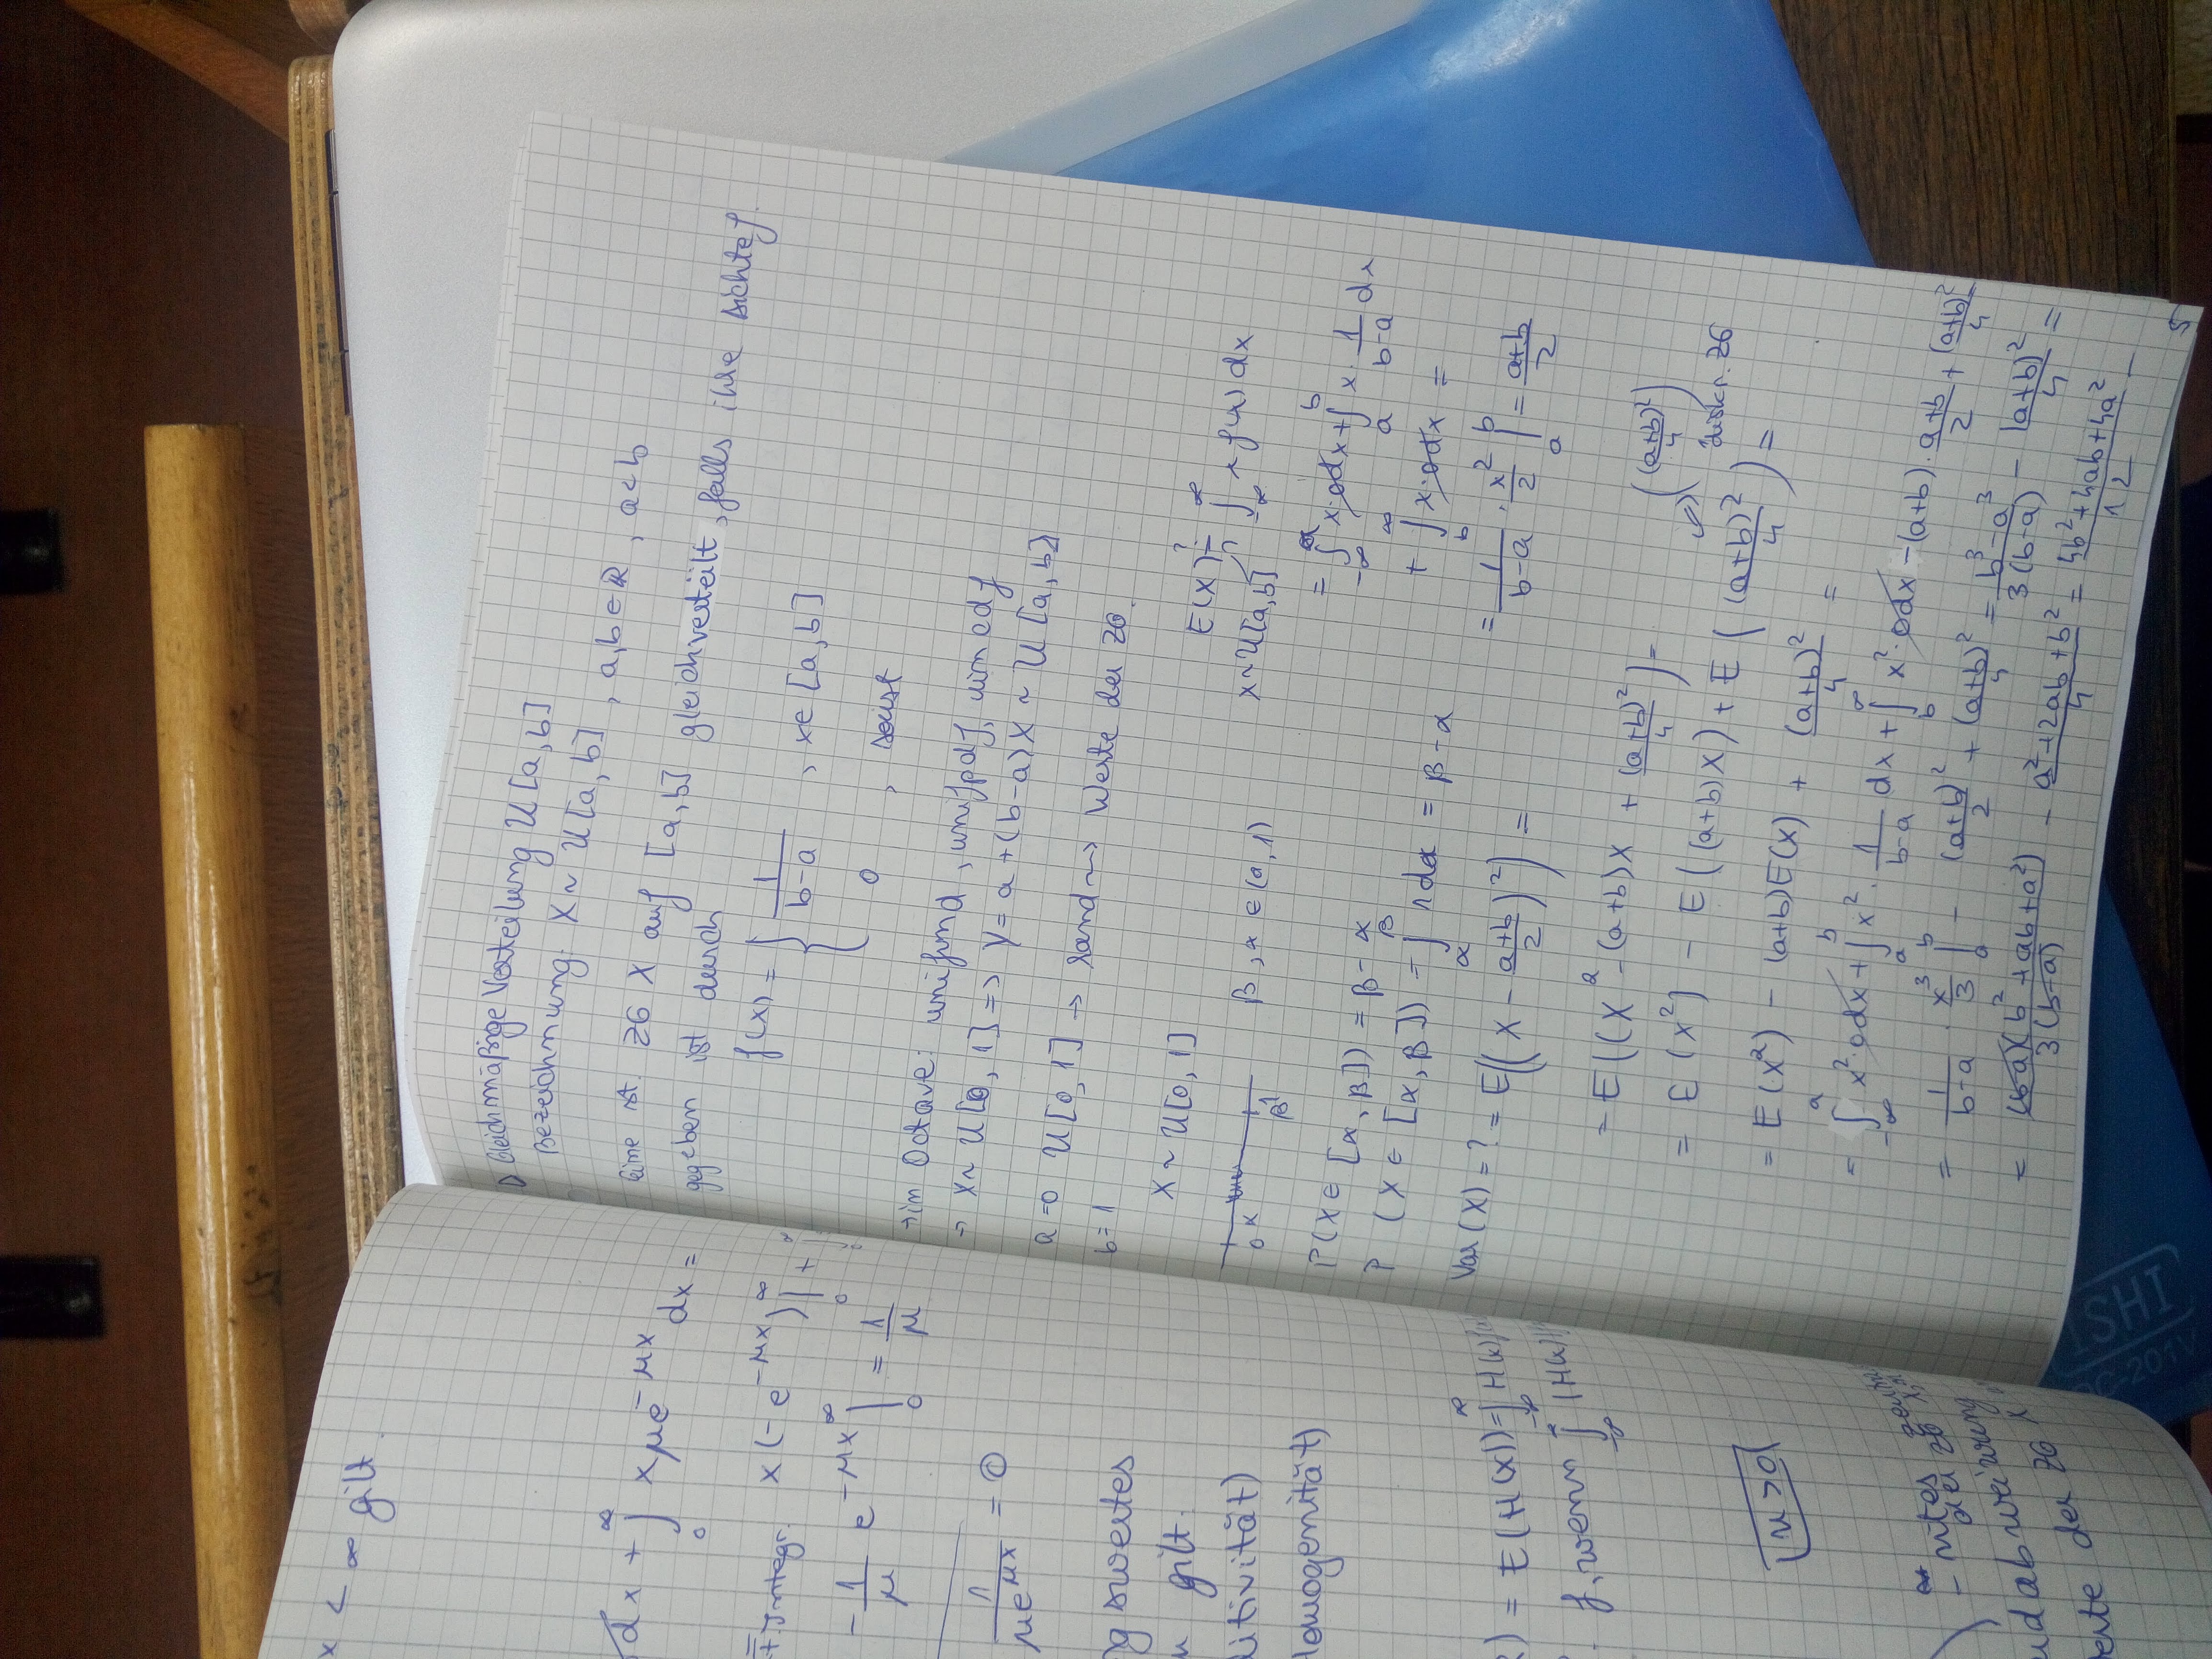 x < ∞ gilt.
dx + ∫₀^∞ xμe^{-μx} dx =
=
+. Integr. x(-e^{-μx})|₀^∞ +
-1/μ e^{-μx}|₀^∞ = 1/μ
1/(μe^{μx}) = 0
gswertes
gilt.
litivität)
Homogenität)
) = E(H(X)) = ∫_{-∞}^∞ H(x)
f, wenn ∫_{-∞}^∞ |H(x)|
μ > 0
der ZG
udabweichung
erte der ZG X
▷ Gleichmäßige Verteilung U[a,b]
Bezeichnung: X ~ U[a,b], a,b ∈ ℝ, a<b
Eine st. ZG X auf [a,b] gleichverteilt, falls ihre Dichte f
gegeben ist durch
f(x) = { 1/(b-a) , x∈[a,b]
0 , sonst
→ in Octave: unifrnd, unifpdf, unifcdf
→ X~U[0,1] => Y = a+(b-a)X ~ U[a,b]
a=0 U[0,1] → rand ~> Werte der ZG.
b=1
X ~ U[0,1]
0 α β 1 β, α ∈ (0,1)
P(X ∈ [α,β]) = β-α
P (X ∈ [α,β]) = ∫_α^β 1dx = β-α
E(X) =? ∫_{-∞}^∞ x f(x) dx
X~U[a,b] ?
= ∫_{-∞}^a x·0dx + ∫_a^b x·1/(b-a) dx
+ ∫_b^∞ x·0dx =
= 1/(b-a) · x²/2 |_a^b = (a+b)/2
Var(X) = ? = E((X - (a+b)/2)²) =
= E((X² - (a+b)X + (a+b)²/4) =
= E(X²) - E((a+b)X) + E((a+b)²/4) =
((a+b)²/4)
diskr. ZG
= E(X²) - (a+b)E(X) + (a+b)²/4 =
= ∫_{-∞}^a x²·0dx + ∫_a^b x²·1/(b-a) dx + ∫_b^∞ x²·0dx - (a+b)·(a+b)/2 + (a+b)²/4 =
= 1/(b-a) · x³/3 |_a^b - (a+b)²/2 + (a+b)²/4 = (b³-a³)/(3(b-a)) - (a+b)²/4 =
= (b-a)(b²+ab+a²)/(3(b-a)) - (a²+2ab+b²)/4 = (4b²+4ab+4a²)/12 -
5